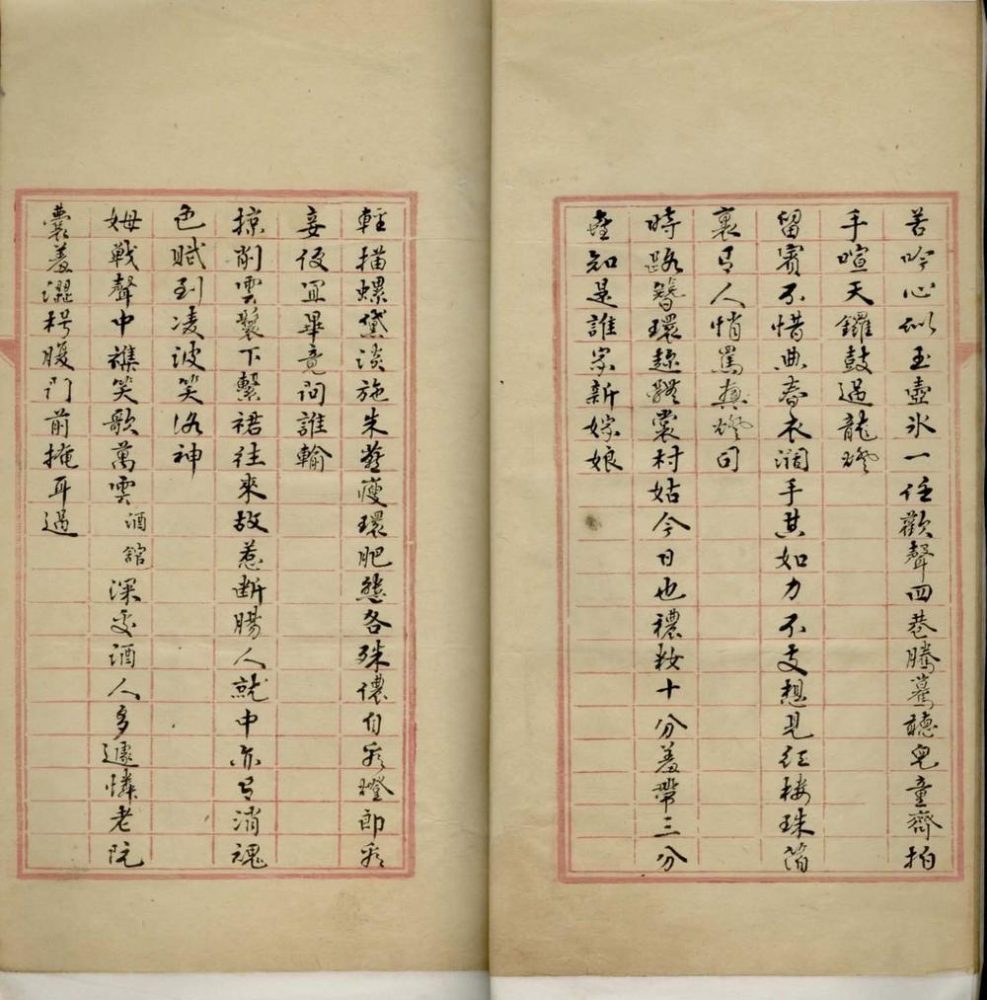 苦吟心似玉壺冰一任歡聲四巷騰驀聽兒童齊拍
手喧天鑼鼓過龍燈
留賓不惜典春衣濶手其如力不支想見紅樓珠箔
裏有人悄罵燈司
時路簪環趁體裳村姑今日也穠妝十分羞帶三分
喜知是誰家新嫁娘
輕描螺黛淡施朱燕瘦環肥態各殊儂自看燈郎看
妾便宜畢竟問誰輸
掠削雲鬟下繫裙往來故惹斷腸人就中亦有消魂
色賦到凌波笑洛神
姆戰聲中雜笑歌萬雲酒館深處酒人多遽憐老阮
囊羞澀枵腹門前掩耳過